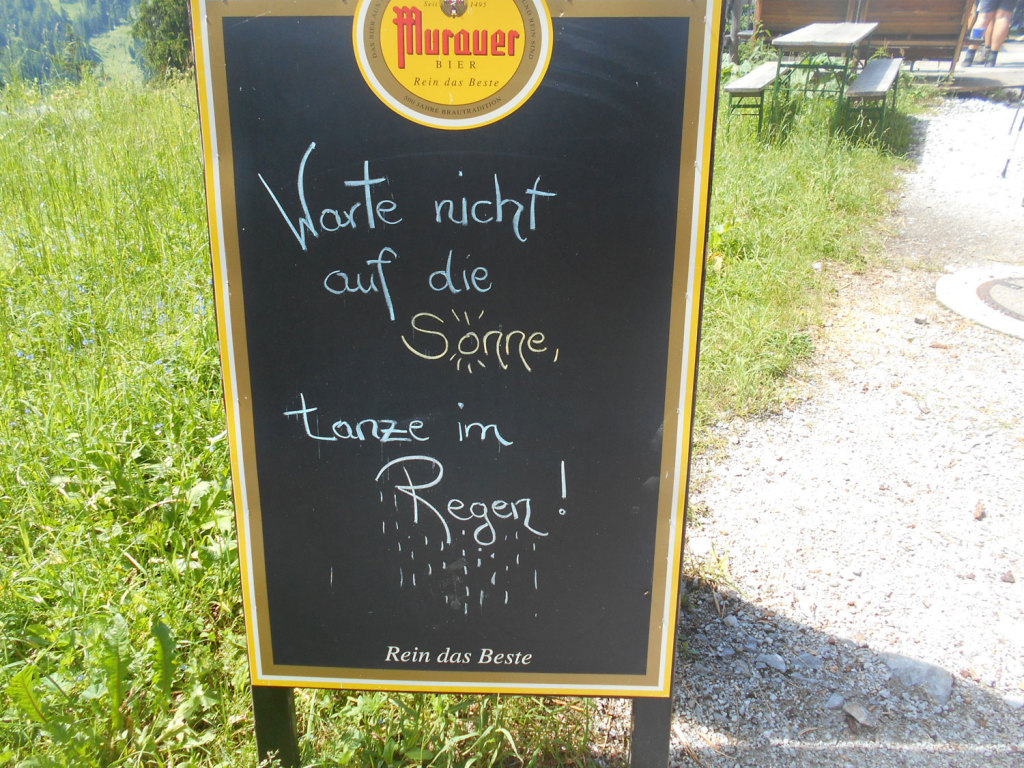 Seit 1495
Murauer
BIER
Rein das Beste
500 JAHRE BRAUTRADITION
Warte nicht
auf die
Sonne,
tanze im
Regen!
Rein das Beste